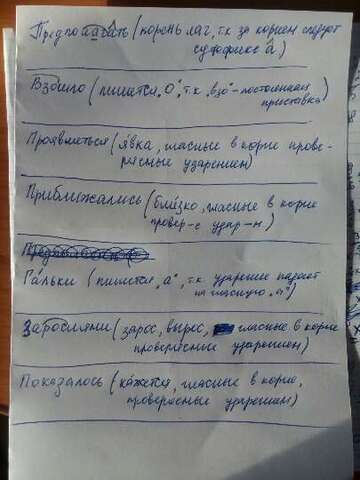 Предполагать (корень лаг, т.к за корнем следует
суффикс а)
Взошло (пишется „О", т.к. „взо" - постоянная
приставка)
Проявляться (явка, гласные в корне прове-
ряемые ударением)
Приближались (близко, гласные в корне
провер-е удар-м)
Гальки (пишется „а", т.к. ударение падает
на гласную „а")
Зарослями (зарос, вырос, гласные в корне
проверяемые ударением)
Показалось (кажется, гласные в корне,
проверяемые ударением)